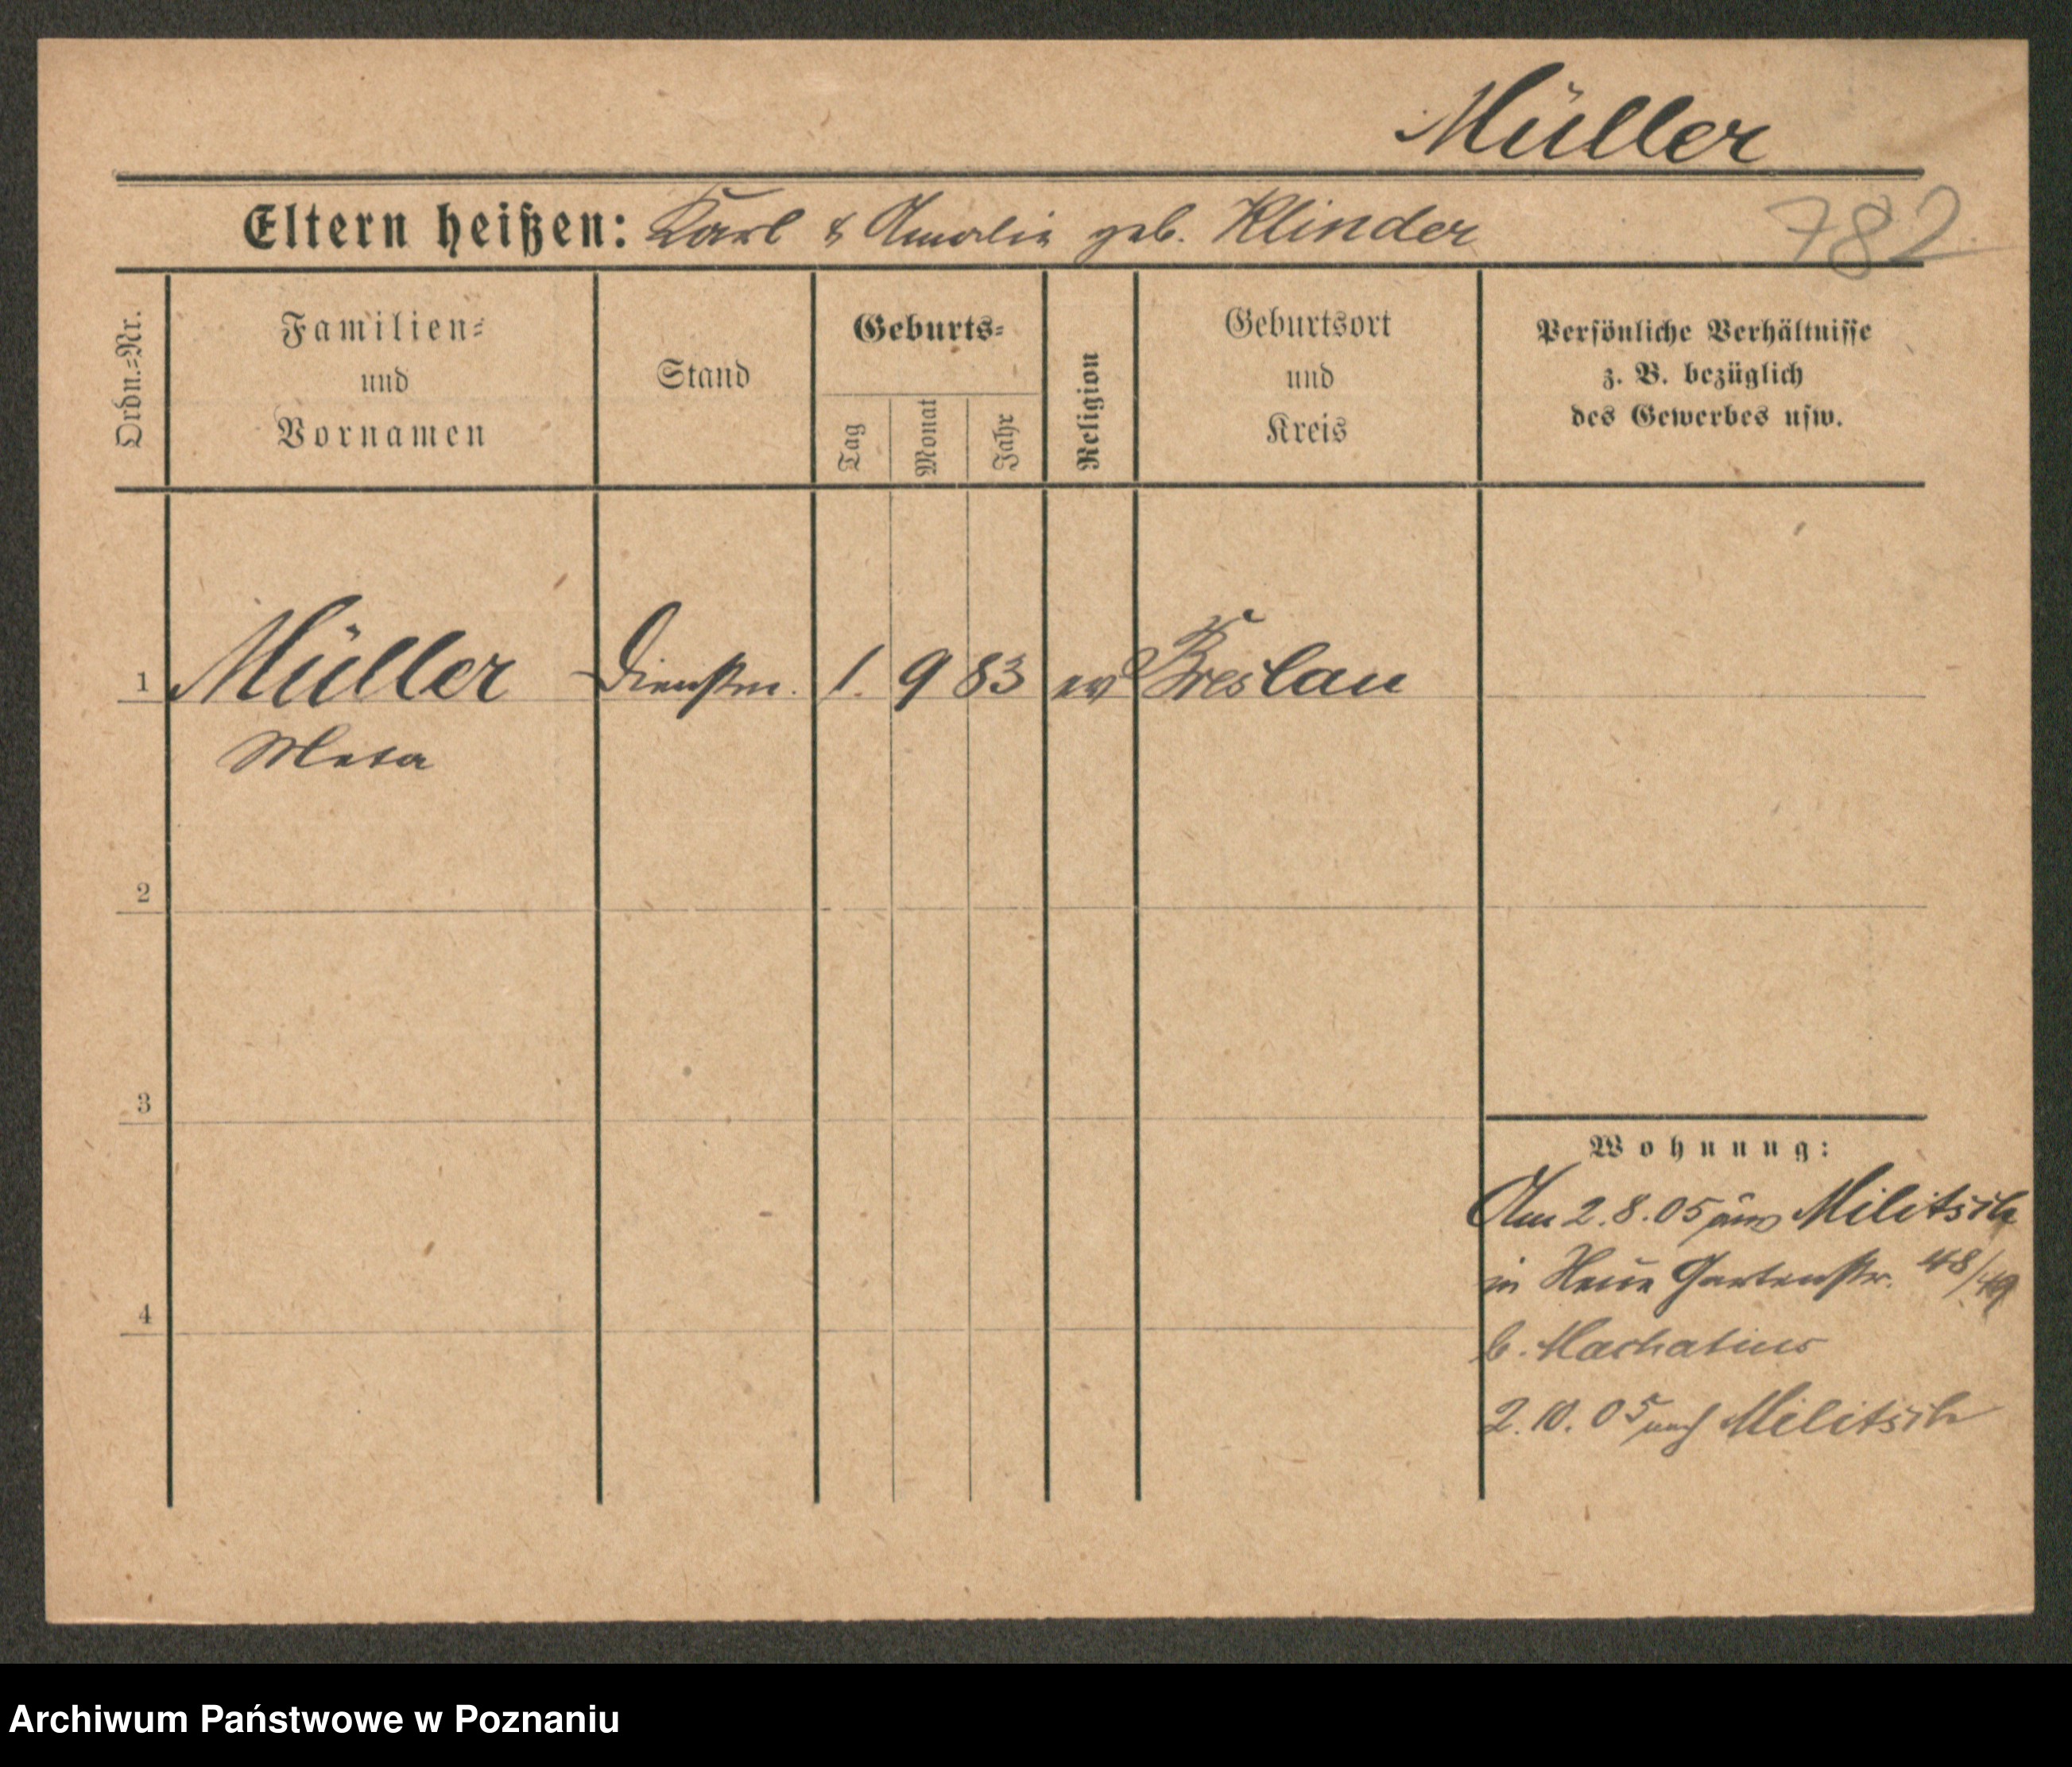 Müller
Eltern heißen: Karl & Amalie geb. Klinder
782
Ordn.=Nr.
Familien=
und
Vornamen
Stand
Geburts=
Tag
Monat
Jahr
Religion
Geburtsort
und
Kreis
Persönliche Verhältnisse
z. B. bezüglich
des Gewerbes usw.
1 Müller Dienstm. 1. 9 83 ev Breslau
Meta
2
3
Wohnung:
Am 2.8.05 aus Militsch
in Neue Gartenstr. 48/49
4
b. Machatius
2.10.05 nach Militsch
Archiwum Państwowe w Poznaniu